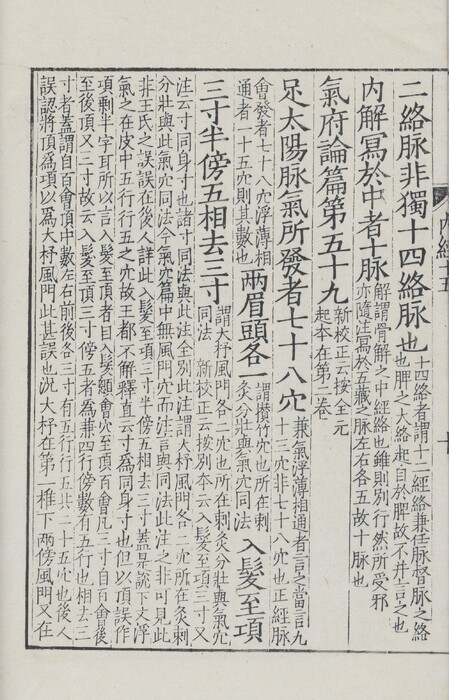 內經十五
二絡脉非獨十四絡脉也
十四絡者謂十二經絡兼任脉督脉之絡
也脾之大絡起自於脾故不并言之也
內解寫於中者十脉
解謂骨解之中經絡也雖則別行然所受邪
亦隨注寫於五藏之脉左右各五故十脉也
氣府論篇第五十九
新校正云按全元
起本在第二卷
足太陽脉氣所發者七十八穴
兼氣浮薄相通者言之當言九
十三穴非七十八穴也正經脉
會發者七十八穴浮薄相
通者一十五穴則其數也
兩眉頭各一
謂攢竹穴也所在刺
灸分壯與氣穴同法
入髮至項
三寸半傍五相去三寸
謂大杼風門各二穴也所在刺灸分壯與氣穴
同法 新校正云按別本云入髮至項三寸又
注云寸同身寸也諸寸同法與此注全別此注謂大杼風門各二穴所在灸刺
分壯與此氣穴同法今氣穴篇中無風門穴而注言與同法此注之非可見此
非王氏之誤誤在後人詳此入髮至項三寸半傍五相去三寸蓋是說下文浮
氣之在皮中五行行五之穴故王都不解釋直云寸為同身寸也但以頂誤作
項剩半字耳所以言入髮至頂者自入髮顖會穴至頂百會凡三寸自百會後
至後頂又三寸故云入髮至頂三寸傍五者為兼四行傍數有五行也相去三
寸者蓋謂自百會頂中數左右前後各三寸有五行行五共二十五穴也後人
誤認將頂為項以為大杼風門此甚誤也況大杼在第一椎下兩傍風門又在